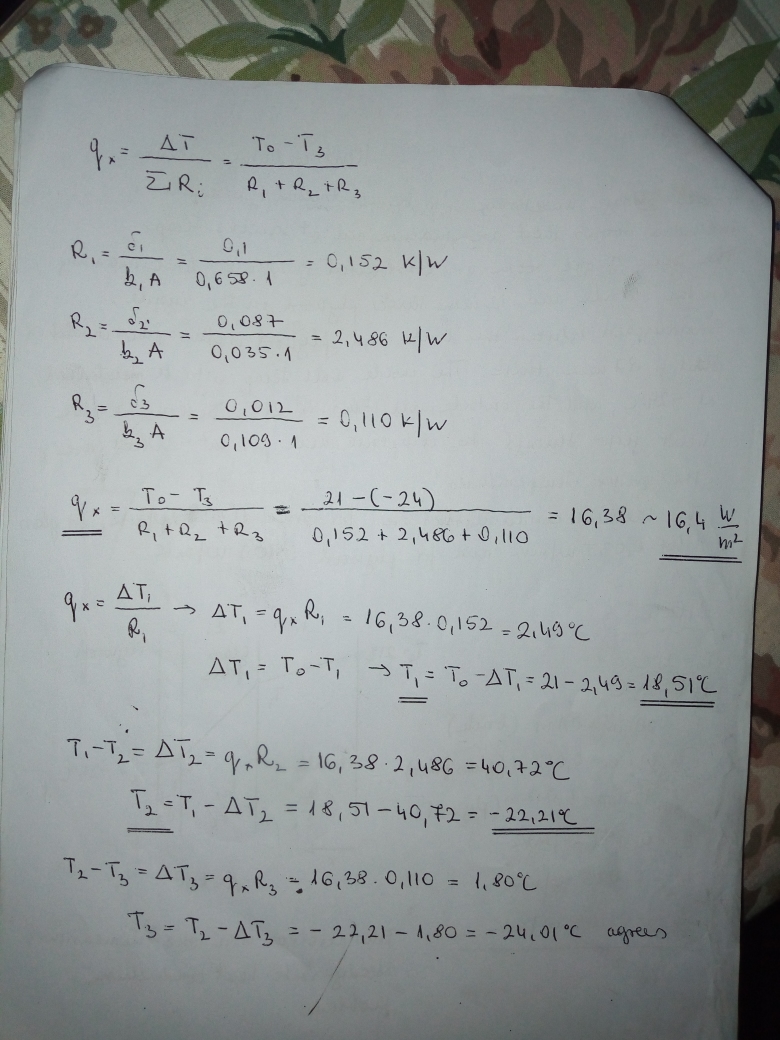 qₓ = ΔT / ΣRᵢ = T₀ - T₃ / R₁ + R₂ + R₃
R₁ = δ₁ / k₁A = 0,1 / 0,658 · 1 = 0,152 K/W
R₂ = δ₂ / k₂A = 0,087 / 0,035 · 1 = 2,486 K/W
R₃ = δ₃ / k₃A = 0,012 / 0,109 · 1 = 0,110 K/W
qₓ = T₀ - T₃ / R₁ + R₂ + R₃ = 21 - (-24) / 0,152 + 2,486 + 0,110 = 16,38 ~ 16,4 W/m²
qₓ = ΔT₁ / R₁ → ΔT₁ = qₓ R₁ = 16,38 · 0,152 = 2,49°C
ΔT₁ = T₀ - T₁ → T₁ = T₀ - ΔT₁ = 21 - 2,49 = 18,51°C
T₁ - T₂ = ΔT₂ = qₓ R₂ = 16,38 · 2,486 = 40,72°C
T₂ = T₁ - ΔT₂ = 18,51 - 40,72 = -22,21°C
T₂ - T₃ = ΔT₃ = qₓ R₃ = 16,38 · 0,110 = 1,80°C
T₃ = T₂ - ΔT₃ = - 22,21 - 1,80 = -24,01°C agrees